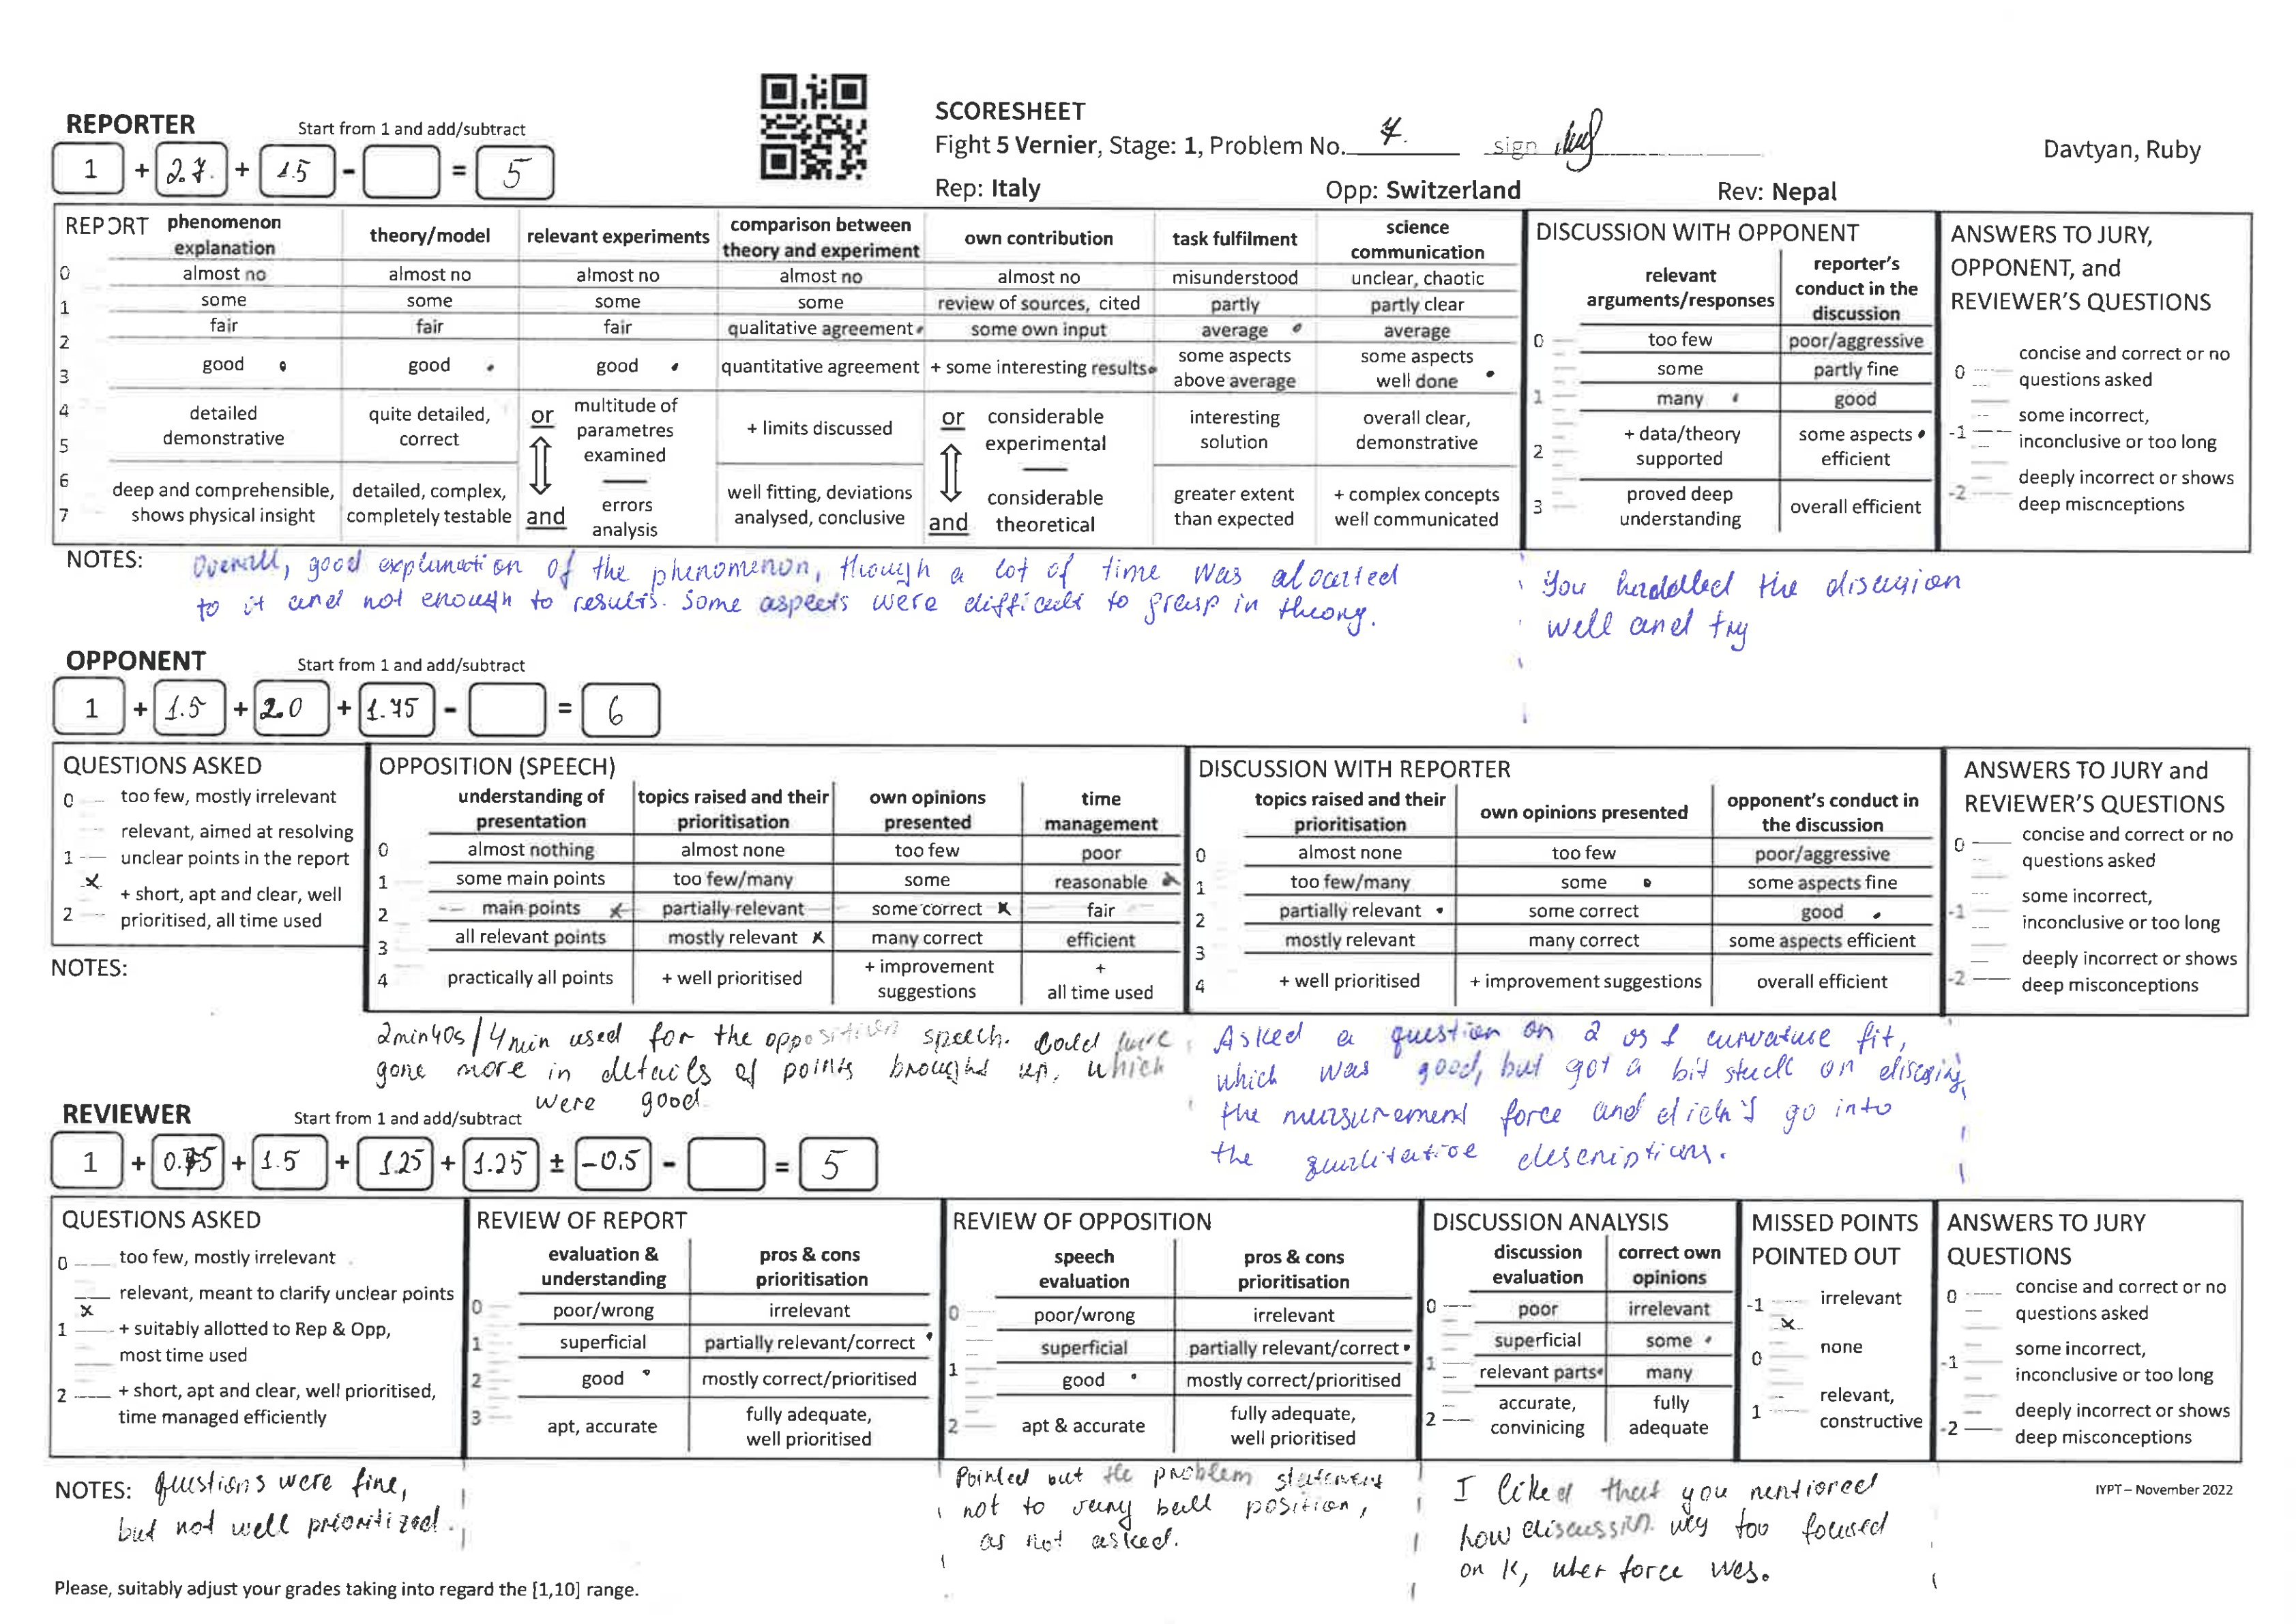 SCORESHEET
Fight 5 Vernier, Stage: 1, Problem No. 7. sign
Davtyan, Ruby
Rep: Italy Opp: Switzerland Rev: Nepal
REPORTER Start from 1 and add/subtract
1 + 2.7. + 1.5 - = 5
REPORT
phenomenon explanation
theory/model
relevant experiments
comparison between theory and experiment
own contribution
task fulfilment
science communication
0 almost no almost no almost no almost no almost no misunderstood unclear, chaotic
1 some some some some review of sources, cited partly partly clear
2 fair fair fair qualitative agreement some own input average average
3 good good good quantitative agreement + some interesting results some aspects above average some aspects well done
4 5 detailed demonstrative quite detailed, correct or multitude of parametres examined + limits discussed or considerable experimental interesting solution overall clear, demonstrative
6 7 deep and comprehensible, shows physical insight detailed, complex, completely testable and errors analysis well fitting, deviations analysed, conclusive and considerable theoretical greater extent than expected + complex concepts well communicated
DISCUSSION WITH OPPONENT
relevant arguments/responses
reporter's conduct in the discussion
0 too few poor/aggressive
some partly fine
1 many good
2 + data/theory supported some aspects efficient
3 proved deep understanding overall efficient
ANSWERS TO JURY, OPPONENT, and REVIEWER'S QUESTIONS
0 concise and correct or no questions asked
-1 some incorrect, inconclusive or too long
-2 deeply incorrect or shows deep miscnceptions
NOTES: Overall, good explanation of the phenomenon, though a lot of time was alocated
to it and not enough to results. Some aspects were difficult to grasp in theory.
You haddled the discusion
well and try
OPPONENT Start from 1 and add/subtract
1 + 1.5 + 2.0 + 1.75 - = 6
QUESTIONS ASKED
0 too few, mostly irrelevant
relevant, aimed at resolving
1 unclear points in the report
x + short, apt and clear, well
2 prioritised, all time used
NOTES:
OPPOSITION (SPEECH)
understanding of presentation
topics raised and their prioritisation
own opinions presented
time management
0 almost nothing almost none too few poor
1 some main points too few/many some reasonable
2 main points x partially relevant some correct x fair
3 all relevant points mostly relevant x many correct efficient
4 practically all points + well prioritised + improvement suggestions + all time used
DISCUSSION WITH REPORTER
topics raised and their prioritisation
own opinions presented
opponent's conduct in the discussion
0 almost none too few poor/aggressive
1 too few/many some some aspects fine
2 partially relevant some correct good
3 mostly relevant many correct some aspects efficient
4 + well prioritised + improvement suggestions overall efficient
ANSWERS TO JURY and REVIEWER'S QUESTIONS
0 concise and correct or no questions asked
-1 some incorrect, inconclusive or too long
-2 deeply incorrect or shows deep misconceptions
2min40s/4min used for the opposition speech. Could have
gone more in details of points brought up, which
were good
Asked a question on 2 vs 1 curvature fit,
which was good, but got a bit stuck on
the measurement force and didn't go into
the qualitative descriptions.
REVIEWER Start from 1 and add/subtract
1 + 0.75 + 1.5 + 1.25 + 1.25 ± -0.5 - = 5
QUESTIONS ASKED
0 too few, mostly irrelevant
relevant, meant to clarify unclear points
x
1 + suitably allotted to Rep & Opp,
most time used
2 + short, apt and clear, well prioritised,
time managed efficiently
REVIEW OF REPORT
evaluation & understanding
pros & cons prioritisation
0 poor/wrong irrelevant
1 superficial partially relevant/correct
2 good mostly correct/prioritised
3 apt, accurate fully adequate, well prioritised
REVIEW OF OPPOSITION
speech evaluation
pros & cons prioritisation
0 poor/wrong irrelevant
superficial partially relevant/correct
1 good mostly correct/prioritised
2 apt & accurate fully adequate, well prioritised
DISCUSSION ANALYSIS
discussion evaluation
correct own opinions
0 poor irrelevant
superficial some
1 relevant parts many
2 accurate, convinicing fully adequate
MISSED POINTS POINTED OUT
-1 irrelevant
x
0 none
1 relevant, constructive
ANSWERS TO JURY QUESTIONS
0 concise and correct or no questions asked
-1 some incorrect, inconclusive or too long
-2 deeply incorrect or shows deep misconceptions
NOTES: questions were fine,
but not well prioritized.
Pointed out the problem statement
not to vary ball position,
as not asked.
I liked that you mentioned
how discussion was too focused
on K, when force was.
IYPT – November 2022
Please, suitably adjust your grades taking into regard the [1,10] range.